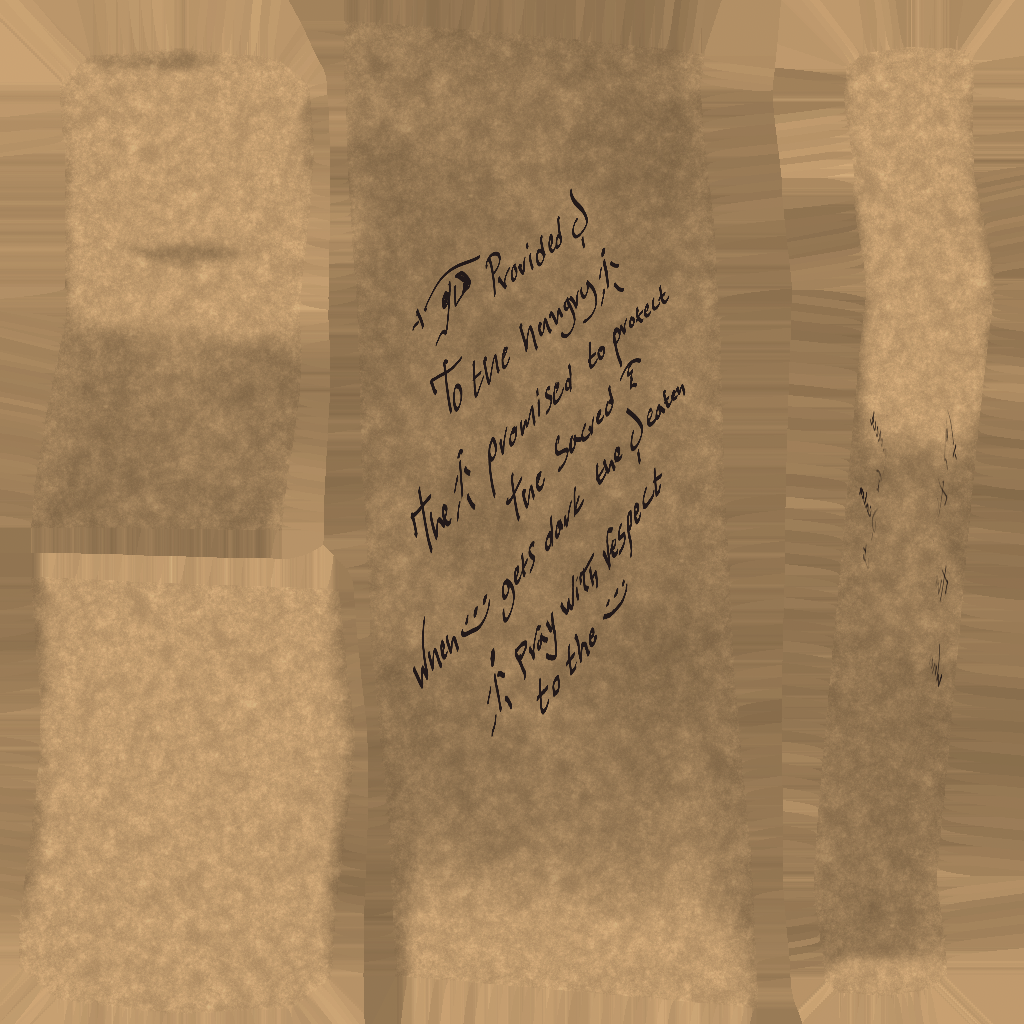 Provided
To the hungry
the promised to protect
the sacred
when gets dark the eaten
pray with respect
to the